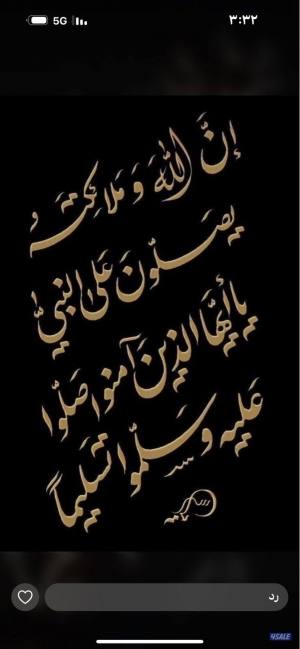 ٣:٣٢
5G
إنَّ اللهَ وَمَلَائِكَتَهُ
يُصَلُّونَ عَلَى النَّبِيِّ
يَا أَيُّهَا الَّذِينَ آمَنُوا صَلُّوا
عَلَيْهِ وَسَلِّمُوا تَسْلِيمًا
رد
4SALE